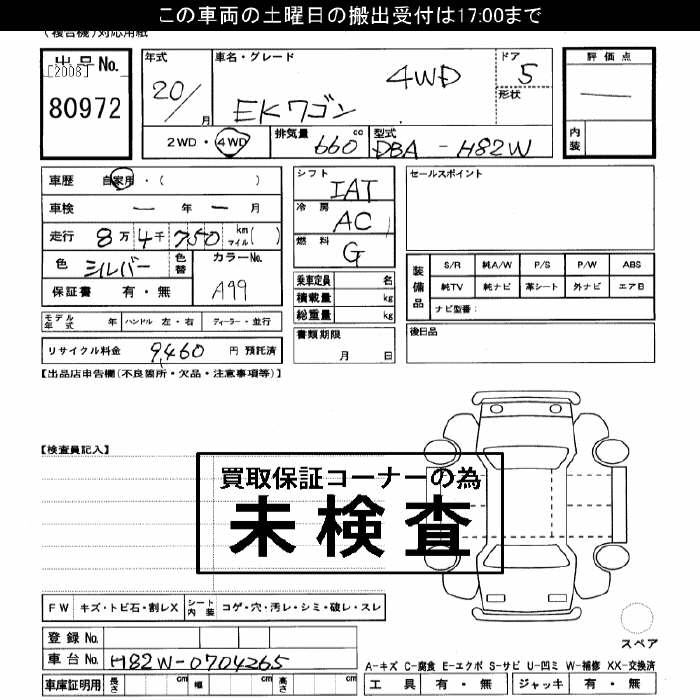 この車両の土曜日の搬出受付は17:00まで
(複合機)対応用紙
出品No.
[2008]
80972
年式
20/月
車名・グレード
4WD
EKワゴン
ドア
5
形状
評価点
—
内装
2WD・4WD
排気量
660 cc
型式
DBA - H82W
車歴 自家用・( )
車検 — 年 — 月
走行 8万4千750 km マイル( )
色 シルバー 色替
カラーNo.
A99
保証書 有・無
モデル年式 年 ハンドル 左・右 ディーラー・並行
リサイクル料金 9,460 円 預託済
シフト
IAT
冷房
AC
燃料
G
乗車定員 名
積載量 kg
総重量 kg
書類期限
月 日
セールスポイント
装備品
S/R 純A/W P/S P/W ABS
純TV 純ナビ 革シート 外ナビ エアB
ナビ型番:
後日品
【出品店申告欄(不良箇所・欠品・注意事項等)】
【検査員記入】
買取保証コーナーの為
未検査
FW キズ・トビ石・割レX シート内装 コゲ・穴・汚レ・シミ・破レ・スレ
登録No.
車台No. H82W-0704265
車庫証明用 長さ cm 幅 cm 高さ cm
スペア
A-キズ C-腐食 E-エクボ S-サビ U-凹ミ W-補修 XX-交換済
工具 有・無 ジャッキ 有・無